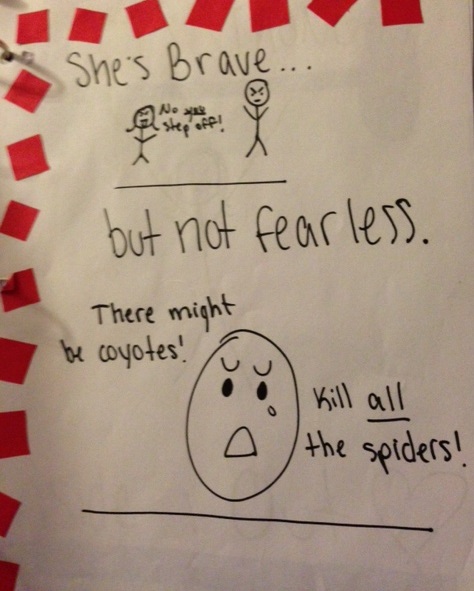 She's Brave...
No you
step off!
but not fearless.
There might
be coyotes!
Kill all
the spiders!